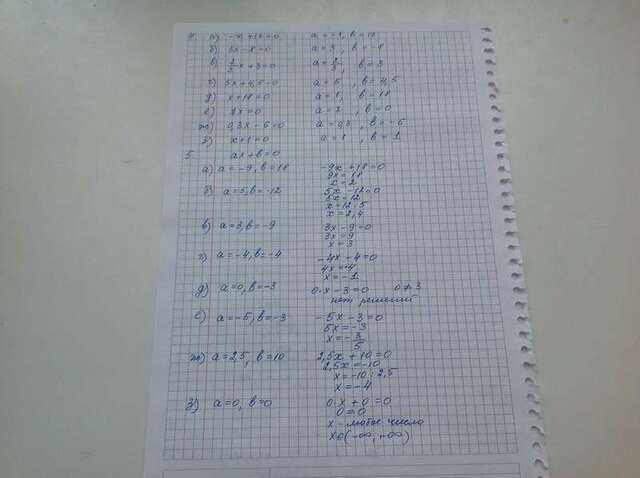 а) -x+12=0 a=-1, b=12
б) 3x-8=0 a=3, b=-8
в) 1/5 x+3=0 b=3
г) 5x+4,5=0 a=5, b=4,5
д) x+18=0 a=1, b=18
е) 7x=0 b=0
ж) 0,3x-6=0 a=0,3, b=-6
з) x+1=0 a=1, b=1
5. ax+b=0
а) a=-9, b=18 -9x+18=0
9x=18
x=2
б) a=5, b=-12 5x-12=0
5x=12
x=12:5
x=2,4
в) a=3, b=-9 3x-9=0
3x=9
x=3
г) a=-4, b=-4 -4x-4=0
4x=-4
x=-1
д) a=0, b=-3 0·x-3=0 0≠3
нет решений
е) a=-5, b=-3 -5x-3=0
5x=-3
x=-3/5
ж) a=2,5, b=10 2,5x+10=0
2,5x=-10
x=-10:2,5
x=-4
з) a=0, b=0 0·x+0=0
0=0
x-любое число
x∈(-∞;+∞)